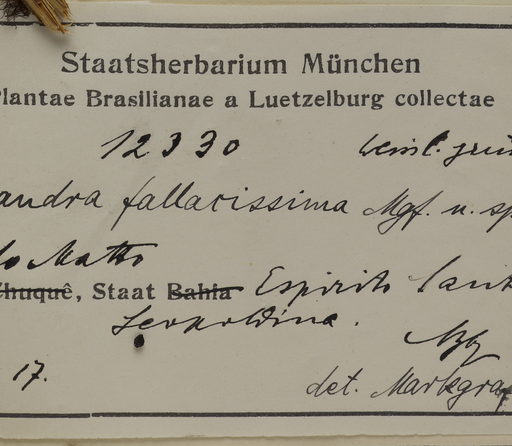 Staatsherbarium München
Plantae Brasilianae a Luetzelburg collectae
12330
andra fallacissima Mgf. n. sp
do Matto
Chuquê, Staat Bahia Espirito Sant
Leopoldina.
17.
det. Markgraf